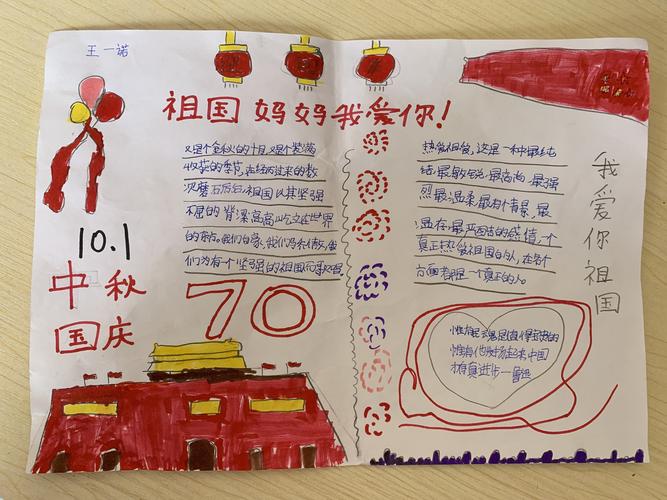 王一诺
祖国妈妈我爱你!
又是个金秋的十月又是个装满
收获的季节,走经历过来的数
次磨石后后祖国以其坚强
不屈的脊梁高高屹立在世界
的东方。我们自豪,我们
们为有一个坚强的祖国而
10.1
中秋
国庆
70
热爱祖爱,这是一种最纯
洁、最敏锐、最高尚、最强
烈、最温柔、最有情景、最
温存、最严
真正热爱祖国的人,在各个
方面都是一个真正的人。
我爱你祖国
惟有民魂是值得宝贵的
惟有他发扬起来中国
才有真进步——鲁迅